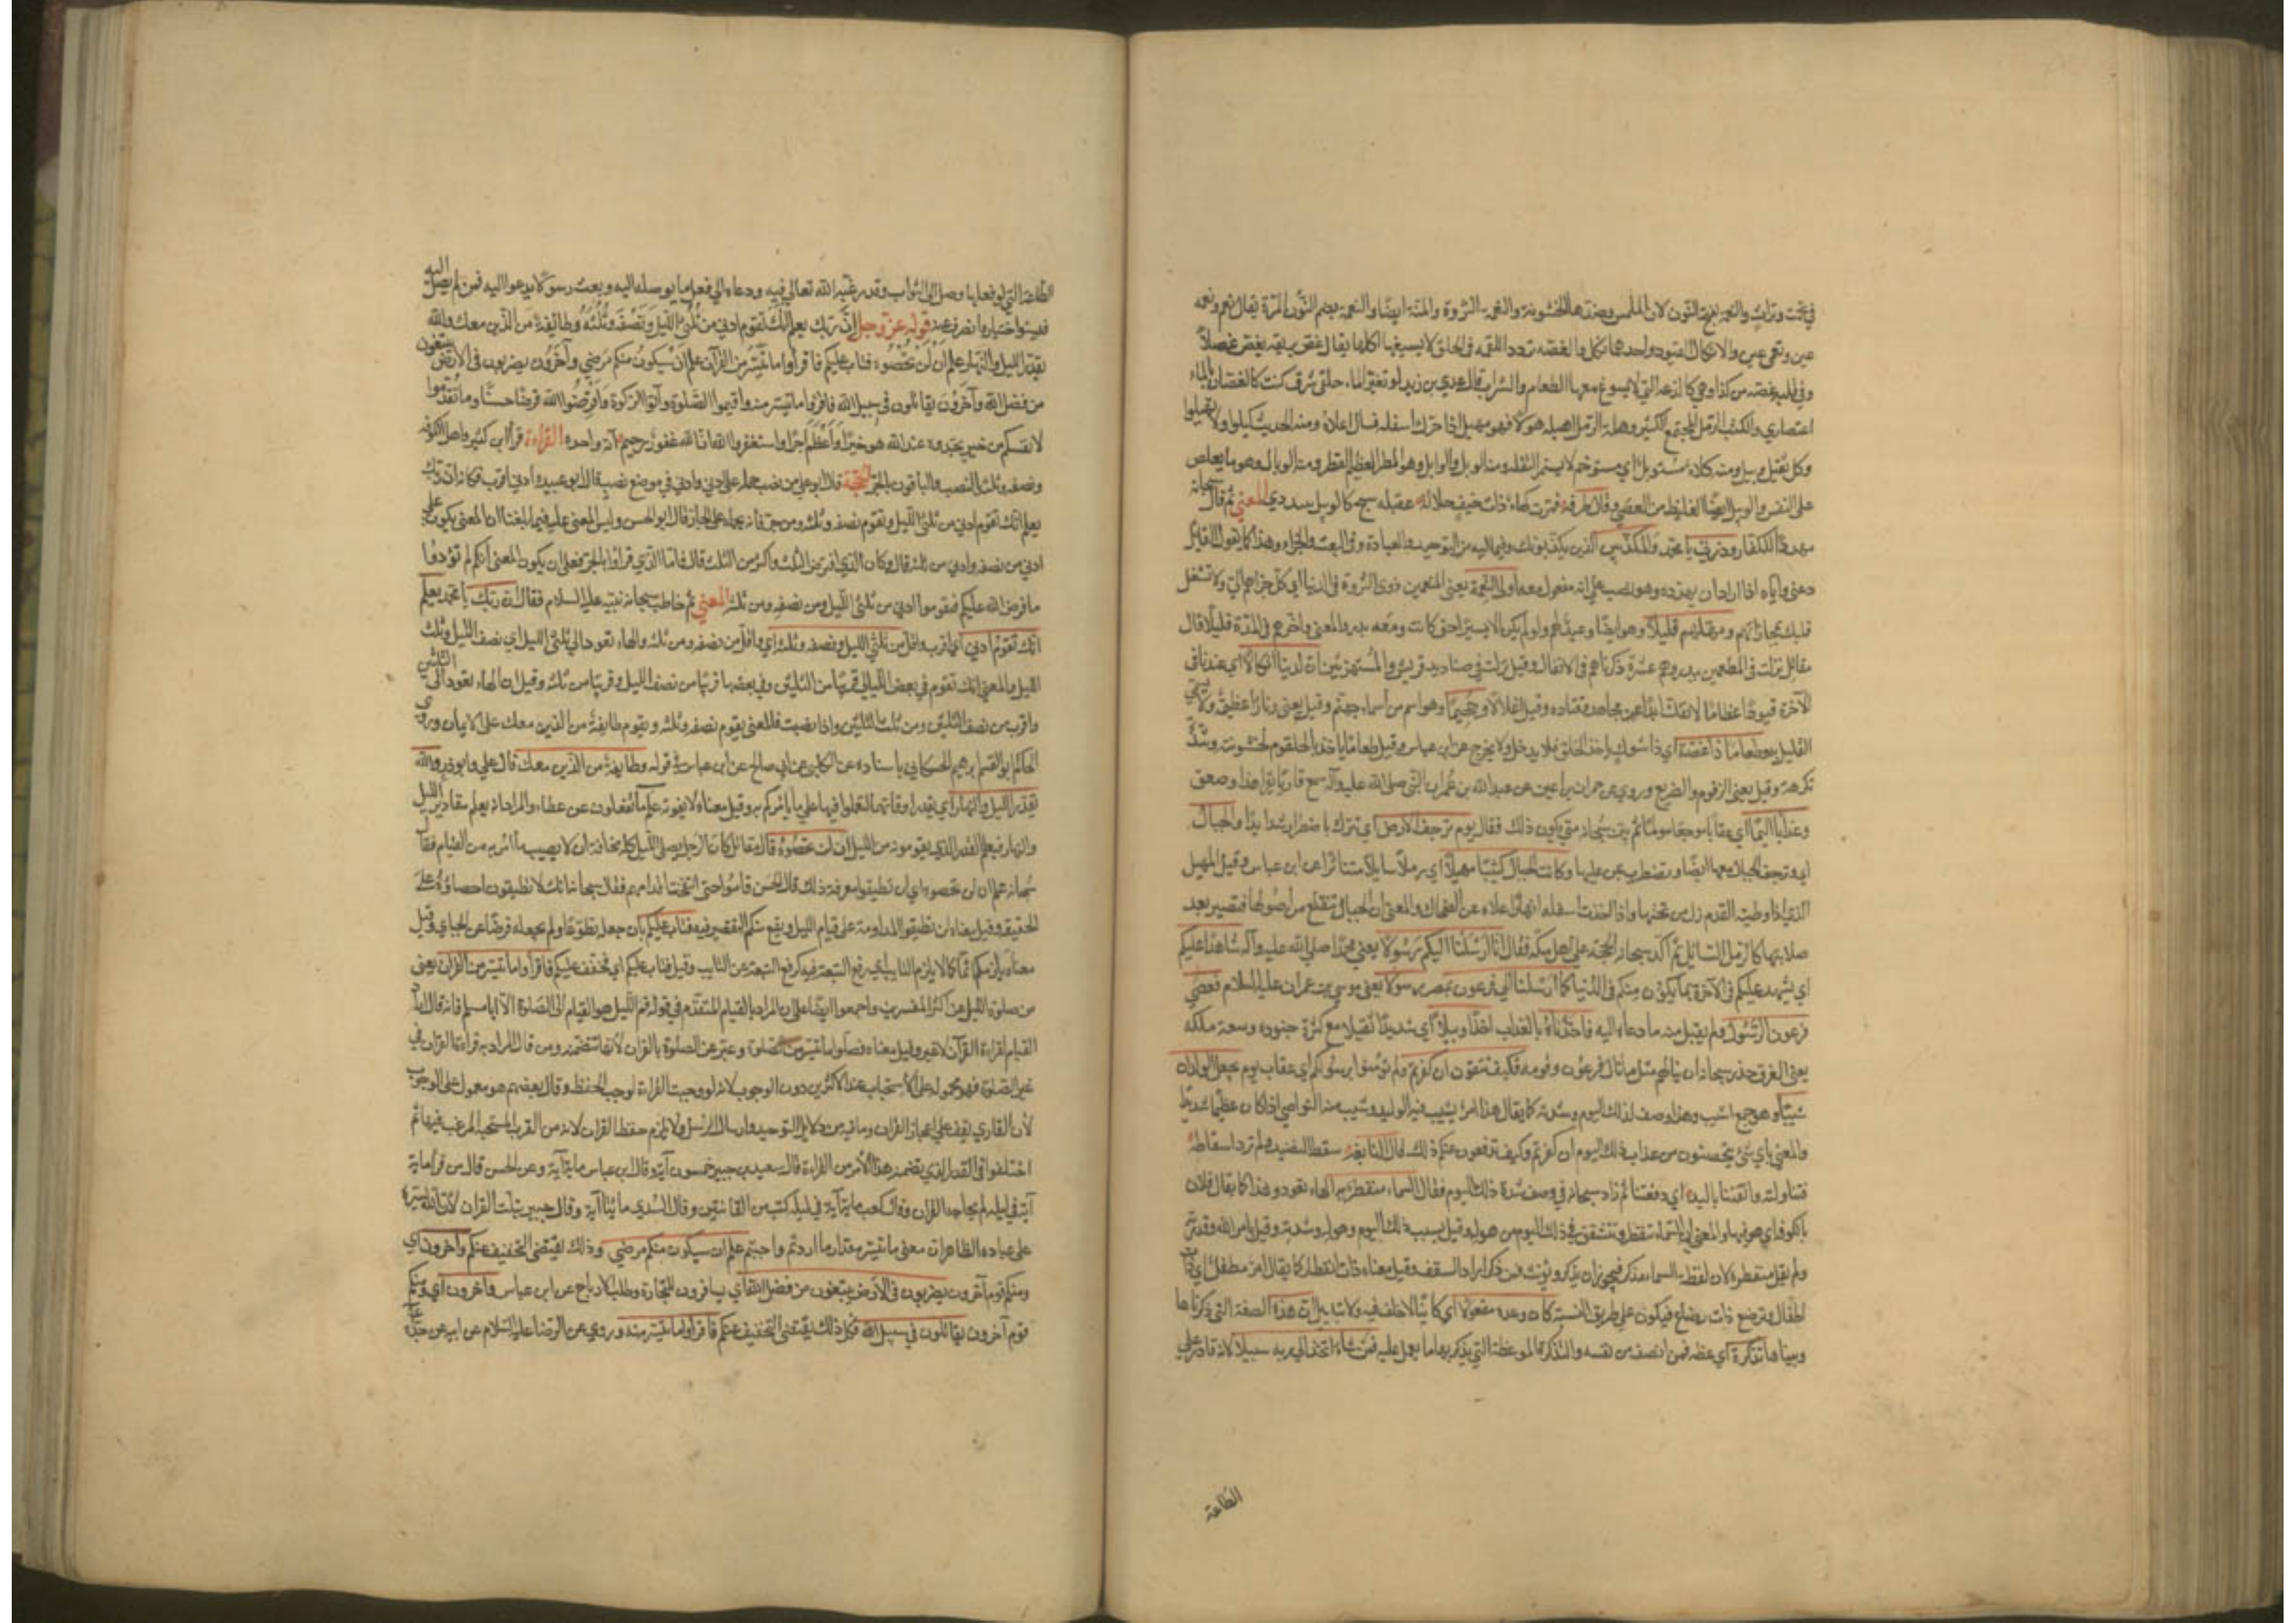 عين ونعمى عين والانكال القيود واحدها نكل والغصة تردد اللقمة في الحلق لا يسيغها اكلها يقال غص بريقه يغص غصصا
وفي قلبه غصة من كذا وهي كاللذعة التي لا يسوغ معها الطعام والشراب قال عدي بن زيد لو بغير الماء حلقي شرق كنت كالغصان بالماء
اعتصاري والكثيب الرمل المجتمع الكثير وهلت الرمل اهيله هيلا فهو مهيل اذا حرك اسفله فسال اعلاه ومنه الحديث كيلوا ولا تهيلوا
وكل ثقيل وبيل ومنه كلاء مستوبل اي مستوخم لا يستمرأ لثقله ومنه الوبل والوابل وهو المطر العظيم القطر ومنه الوبال وهو ما يغلظ
على النفس والوبيل ايضا الغليظ من العصي وقال طرفة فمرت كهاة ذات خيف جلالة عقيلة شيخ كالوبيل يلندد المعنى ثم قال سبحانه
مهددا للكفار وذرني يا محمد والمكذبين الذين يكذبونك فيما تدعوهم اليه من التوحيد والعبادة وفي البعث والجزاء وهذا كما يقول القايل
دعني واياه اذا اراد ان يهدده وهو نصب على انه مفعول معه اولى النعمة يعني المتنعمين ذوى الثروة في الدنيا اي كل جزاءهم الي ولا تشغل
قلبك بمجازاتهم ومهلهم قليلا وهو ايضا وعيد لهم ولم يكن الا يسيرا حتى كانت وقعة بدر والمعنى واخرهم في المدة قليلا قال
مقاتل نزلت في المطعمين ببدر وهم عشرة ذكرناهم في الانفال وقيل نزلت في صناديد قريش والمستهزئين ان لدينا انكالا اي عندنا في
الآخرة قيودا عظاما لا تفك ابدا عن مجاهد وقتادة وقيل اغلالا وجحيما وهو اسم من اسماء جهنم وقيل يعني ونارا عظيمة ولا يسمى
القليل به وطعاما ذا غصة اي ذا شوك ياخذ الحلق فلا يدخل ولا يخرج عن ابن عباس وقيل طعاما ياخذ بالحلقوم لخشونته وشدة
تكرهه وقيل يعني الزقوم والضريع وروي عن حمران بن اعين عن عبد الله بن عمر ان النبي صلى الله عليه وآله سمع قاريا يقرا هذا فصعق
وعذابا اليما اي عقابا موجعا مولما ثم بين سبحانه متى يكون ذلك فقال يوم ترجف الارض اي تتحرك باضطراب شديد والجبال
اي وترجف الجبال معها ايضا وتضطرب بمن عليها وكانت الجبال كثيبا مهيلا اي رملا سايلا متناثرا عن ابن عباس وقيل المهيل
الذي اذا وطئه القدم زل من تحتها واذا اخذت اسفله انهار اعلاه عن الضحاك والمعنى ان الجبال تنقلع من اصولها فتصير بعد
صلابتها كالرمل السائل ثم اكد سبحانه الحجة على اهل مكة فقال انا ارسلنا اليكم رسولا يعني محمدا صلى الله عليه وآله شاهدا عليكم
اي يشهد عليكم في الآخرة بما يكون منكم في الدنيا كما ارسلنا الى فرعون بمصر رسولا يعني موسى بن عمران عليه السلام فعصى
فرعون الرسول ولم يقبل منه ما دعاه اليه فاخذناه بالعذاب اخذا وبيلا اي شديدا ثقيلا مع كثرة جنوده وسعة ملكه
يعني الغرق حذرهم سبحانه ان ينالهم مثل ما نال فرعون وقومه فكيف تتقون ان كفرتم ولم تؤمنوا برسولكم اي عقاب يوم يجعل الولدان
شيبا وهو جمع اشيب وهذا وصف لذلك اليوم وشدته كما يقال هذا امر يشيب فيه الوليد وتشيب منه النواصي اذا كان عظيما شديدا
والمعنى باي شيء تتحصنون من عذاب ذلك اليوم ان كفرتم وكيف تدفعون عنكم ذلك قال النابغة سقط النصيف ولم ترد اسقاطه
فتناولته واتقتنا باليد اي دفعتنا ثم زاد سبحانه في وصف شدة ذلك اليوم فقال السماء منفطر به الهاء تعود وهذا كما يقال فلان
بالكوفة اي هو فيها والمعنى ان السماء تنفطر وتنشقق في ذلك اليوم من هوله وقيل بسبب ذلك اليوم وهوله وشدته وقيل بامر الله وقدرته
ولم يقل منفطرة لان لفظة السماء مذكر فيجوز ان يذكر ويؤنث فمن ذكر اراد السقف وقيل معناه ذات انفطار كما يقال امراة مطفل اي ذات
اطفال ومرضع ذات رضاع فيكون على طريق النسبة كان وعده مفعولا اي كاينا لا خلف فيه ولا تبديل ان هذه الصفة التي ذكرناها
وبيناها تذكرة اي عظة فمن انصف من نفسه والتذكرة الموعظة التي يذكر بها ما يعمل عليه فمن شاء اتخذ الى ربه سبيلا لانه قادر على
الطاعة
الطاعة التي لو فعلها وصل الى الثواب وقد رغبه الله تعالى فيه ودعاه الى فعل ما يوصله اليه وبعث رسولا يدعوا اليه فمن لم يصل اليه
فبسوء اختياره انصرف عنه قوله عز وجل ان ربك يعلم انك تقوم ادنى من ثلثي الليل ونصفه وثلثه وطايفة من الذين معك والله
يقدر الليل والنهار علم ان لن تحصوه فتاب عليكم فاقرؤا ما تيسر من القرآن علم ان سيكون منكم مرضى وآخرون يضربون في الارض يبتغون
من فضل الله وآخرون يقاتلون في سبيل الله فاقرؤا ما تيسر منه واقيموا الصلوة وآتوا الزكوة واقرضوا الله قرضا حسنا وما تقدموا
لانفسكم من خير تجدوه عند الله هو خيرا واعظم اجرا واستغفروا الله ان الله غفور رحيم آية واحدة القراءة قرأ ابن كثير واهل الكوفة
ونصفه وثلثه بالنصب والباقون بالجر الحجة قال ابو علي من نصب حمله على ادنى وادنى في موضع نصب قال ابو عبيدة ادنى اقرب فكانه ان ربك
يعلم انك تقوم ادنى من ثلثي الليل وتقوم نصفه وثلثه ومن جر فانه يحمله على الجار قال ابو الحسن وليس المعنى عليه فيما بلغنا ان المعنى يكون على
ادنى من نصفه وادنى من ثلثه قال وكان الذي افترض الثلث واكثر من الثلث قال فاما الذين قراوا بالجر فعلى ان يكون المعنى انكم لم تؤدوا
ما فرض الله عليكم فقوموا ادنى من ثلثي الليل ومن نصفه ومن ثلثه المعنى ثم خاطب سبحانه نبيه عليه السلام فقال ان ربك يا محمد يعلم
انك تقوم ادنى اي اقرب واقل من ثلثي الليل ونصفه وثلثه اي واقل من نصفه ومن ثلثه والهاء تعود الى الليل اي نصف الليل وثلث
الليل والمعنى انك تقوم في بعض الليالي قريبا من الثلثين وفي بعضها قريبا من نصف الليل وقريبا من ثلثه وقيل ان الهاء تعود الى الثلثين
واقرب من نصف الثلثين ومن ثلث الثلثين واذا نصبت فالمعنى يقوم نصفه وثلثه ويقوم طايفة من الذين معك على الايمان وروى
الحاكم ابو القسم ابرهيم الحسكاني باسناده عن الكلبي عن ابي صالح عن ابن عباس في قوله وطايفة من الذين معك قال علي وابو ذر والله
يقدر الليل والنهار اي يقدر اوقاتهما لتعلموا فيها على ما يامركم به وقيل معناه لا يفوته علم ما تفعلون عن عطاء والمراد انه يعلم مقادير الليل
والنهار فيعلم القدر الذي يقومونه من الليل ان لن تحصوه قال مقاتل كان الرجل يصلي الليل كله مخافة ان لا يصيب ما امر به من القيام فقال
سبحانه علم ان لن تحصوه اي لن تطيقوا معرفة ذلك قال الحسن قاموا حتى انتفخت اقدامهم فقال سبحانه انكم لا تطيقون احصاءه على
الحقيقة وقيل معناه لن تطيقوا المداومة على قيام الليل ويقع منكم التقصير فيه فتاب عليكم بان جعله تطوعا ولم يجعله فرضا عن الجبائي وقيل
معناه لم يلزمكم اثما كما لا يلزم التايب اي رفع التبعة فيه كرفع التبعة عن التايب وقيل فتاب عليكم اي فخفف عليكم فاقرأوا ما تيسر من القرآن يعني
من صلوة الليل عن اكثر المفسرين واجمعوا ايضا على ان المراد بالقيام المتقدم في قوله قم الليل هو القيام الى الصلوة الا ابا مسلم فانه قال اراد
القيام لقراءة القرآن لا غير وقيل معناه فصلوا ما تيسر من الصلوة وعبر عن الصلوة بالقرآن لانها تتضمنه ومن قال المراد به قراءة القرآن في
غير الصلوة فهو محمول على الاستحباب عند الاكثرين دون الوجوب لانه لو وجبت القراءة لوجب الحفظ وقال بعضهم هو محمول على الوجوب
لان القاري يقف على اعجاز القرآن وما فيه من دلايل التوحيد وارسال الرسل ولا يلزم حفظ القرآن لانه من القرب المستحبة المرغب فيها ثم
اختلفوا في القدر الذي يتضمنه هذا الامر من القراءة قال سعيد بن جبير خمسون آية وقال ابن عباس ماية آية وعن الحسن قال من قرأ ماية
آية في ليلة لم يحاجه القرآن وقال كعب من قرأ ماية آية في ليلة كتب من القانتين وقال السدي مائتا آية وقال جبير ثلث القرآن لان الله يسره
على عباده الظاهر ان معنى ما تيسر مقدار ما اردتم واحببتم علم ان سيكون منكم مرضى وذلك يقتضي التخفيف عنكم وآخرون اي
ومنكم قوم آخرون يضربون في الارض يبتغون من فضل الله اي يسافرون للتجارة وطلب الارباح عن ابن عباس وآخرون اي ومنكم
قوم آخرون يقاتلون في سبيل الله فكل ذلك يقتضي التخفيف عنكم فاقرأوا ما تيسر منه وروي عن الرضا عليه السلام عن ابيه عن جده عليهم